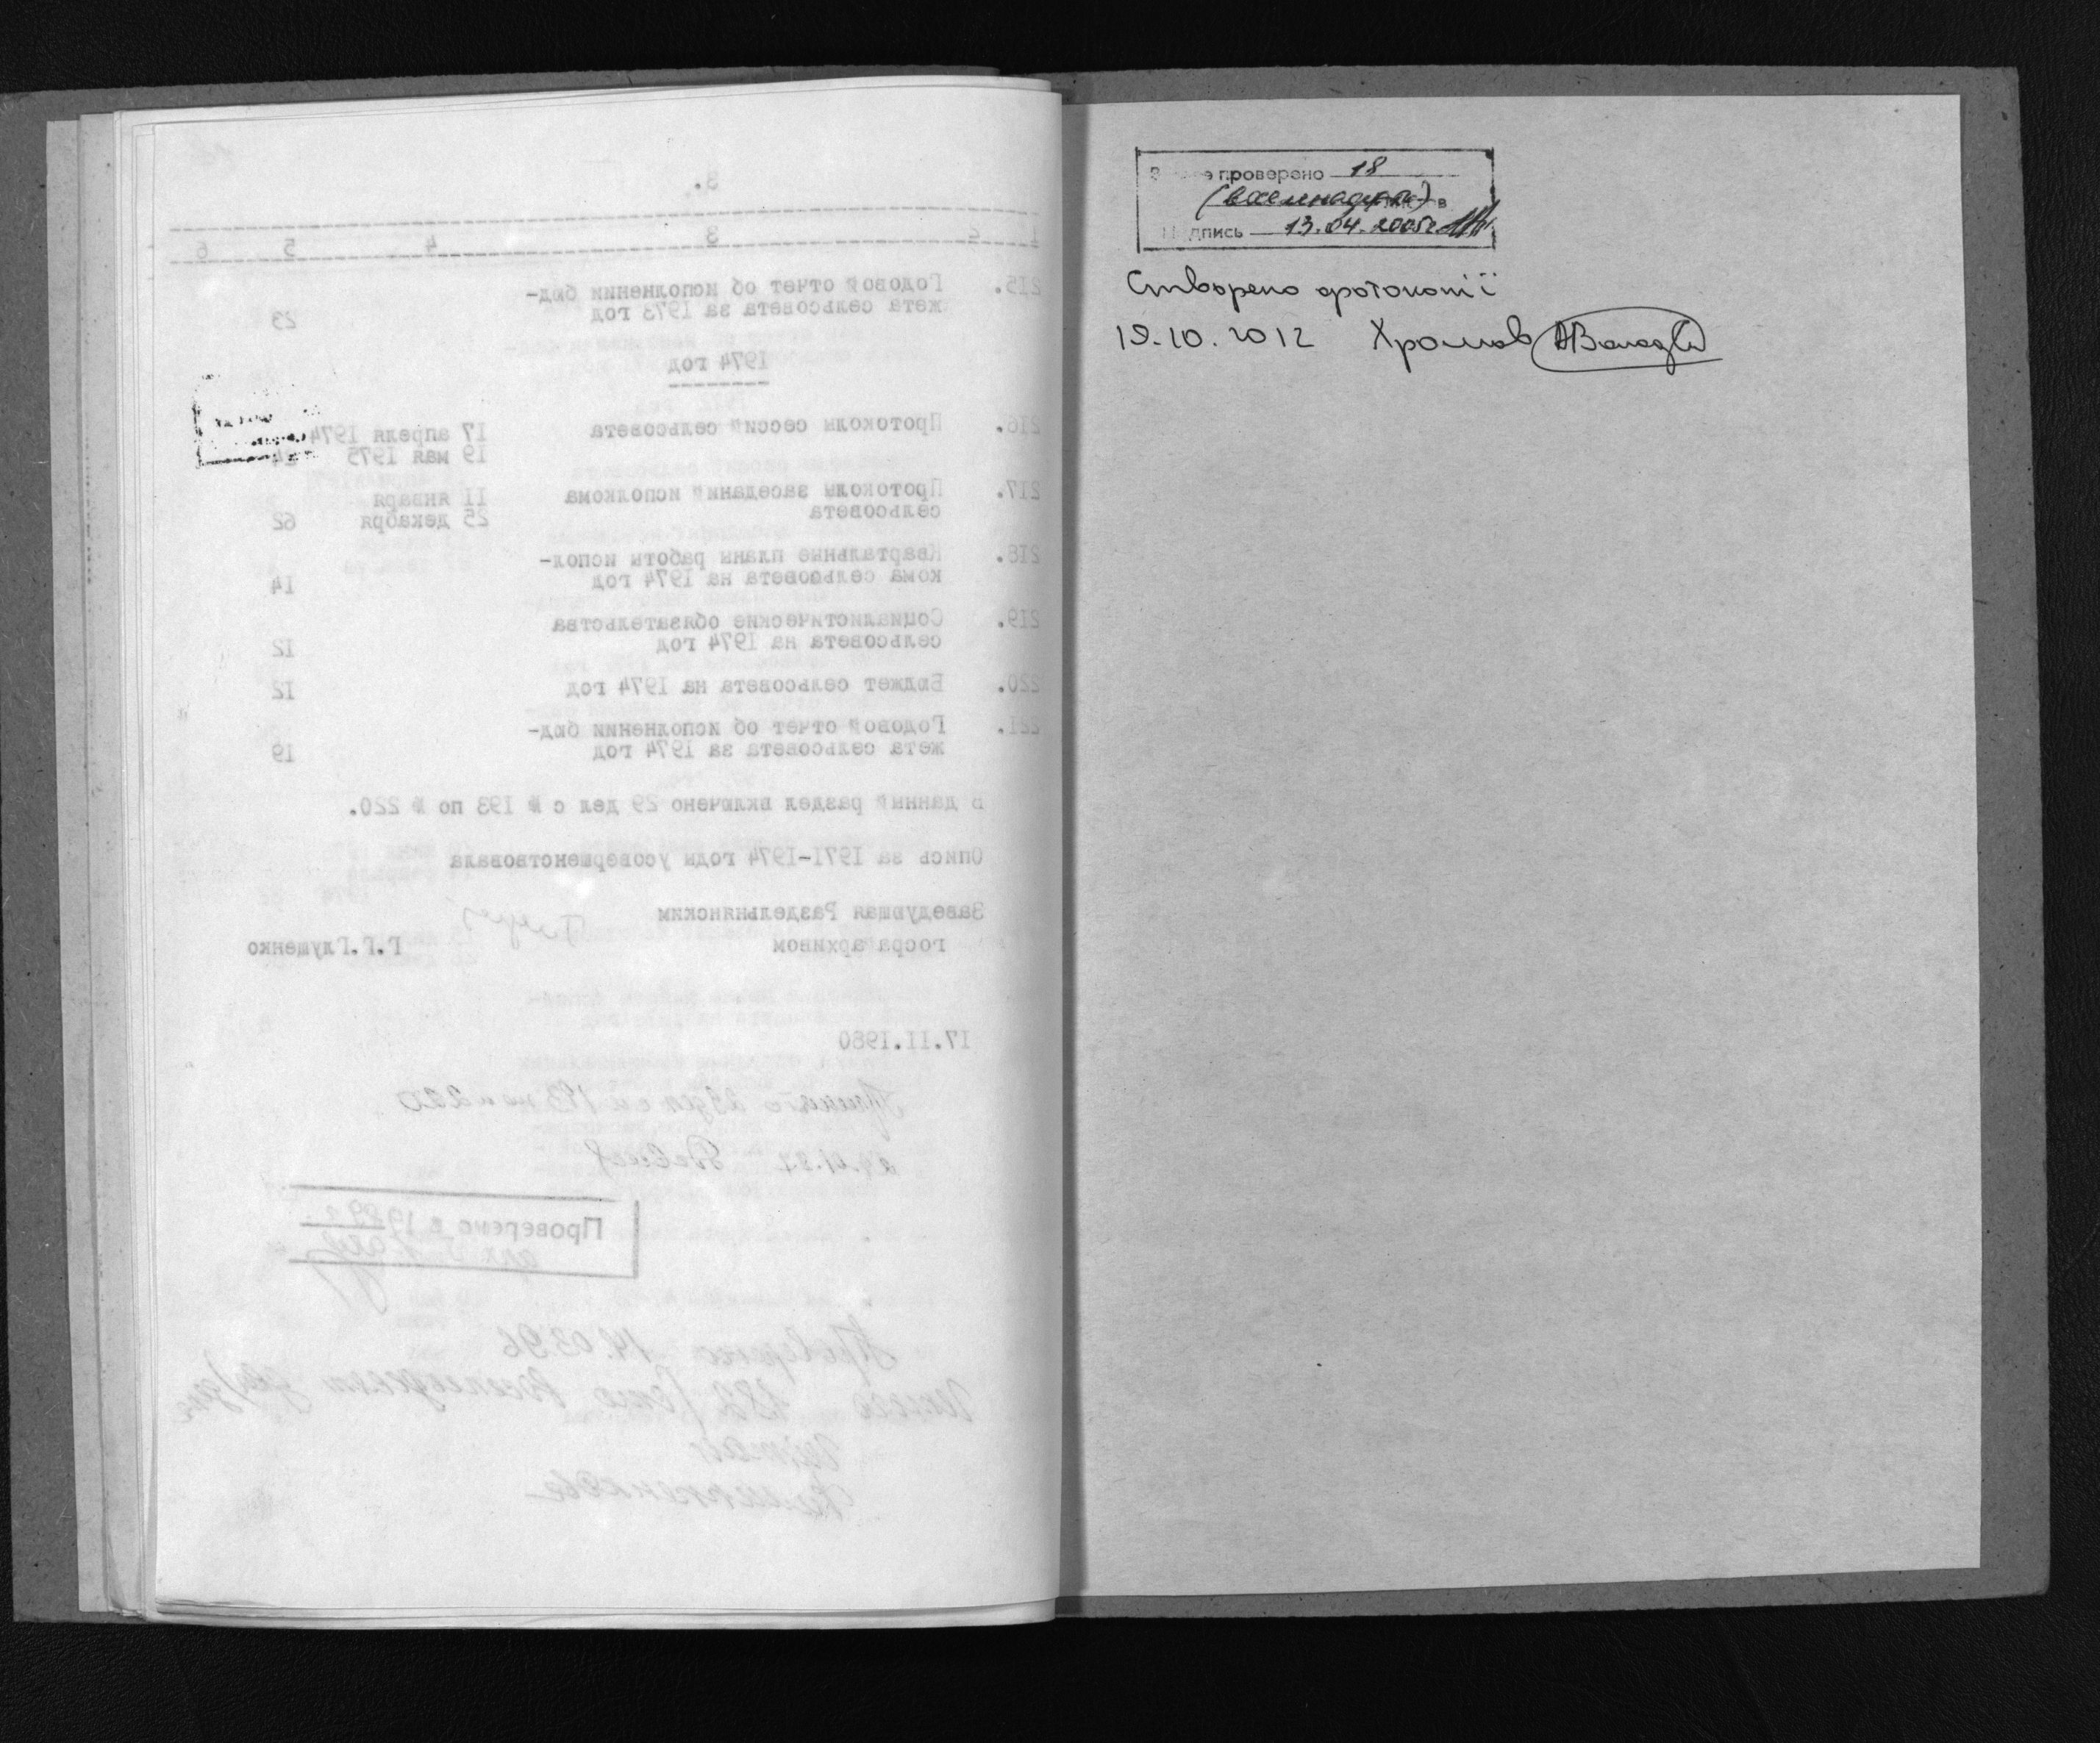 8.
1 2 3 4 5 6
215. Годовой отчет об исполнении бюд-
жета сельсовета за 1973 год 23
1974 год
216. Протоколы сессий сельсовета 17 апреля 1974
19 мая 1975
217. Протоколы заседаний исполкома 11 января
сельсовета 25 декабря 62
218. Квартальные планы работы испол-
кома сельсовета на 1974 год 14
219. Социалистические обязательства
сельсовета на 1974 год 12
220. Бюджет сельсовета на 1974 год 12
221. Годовой отчет об исполнении бюд-
жета сельсовета за 1974 год 19
В данный раздел включено 29 дел с № 193 по № 220.
Опись за 1971-1974 годы усовершенствовала
Заведующая Раздельнянским
госрархивом Г.Г.Глущенко
17.11.1980
Принято 29 дел с н 193 по н 220
Проверено в 1989 г.
Проверено 14.03.96
Итого 182 (сто восемьдесят два) дел
проверено 18
(восемнадцать) в
подпись 13.04.2005г
Створено фотокопії
19.10.2012 Хромов